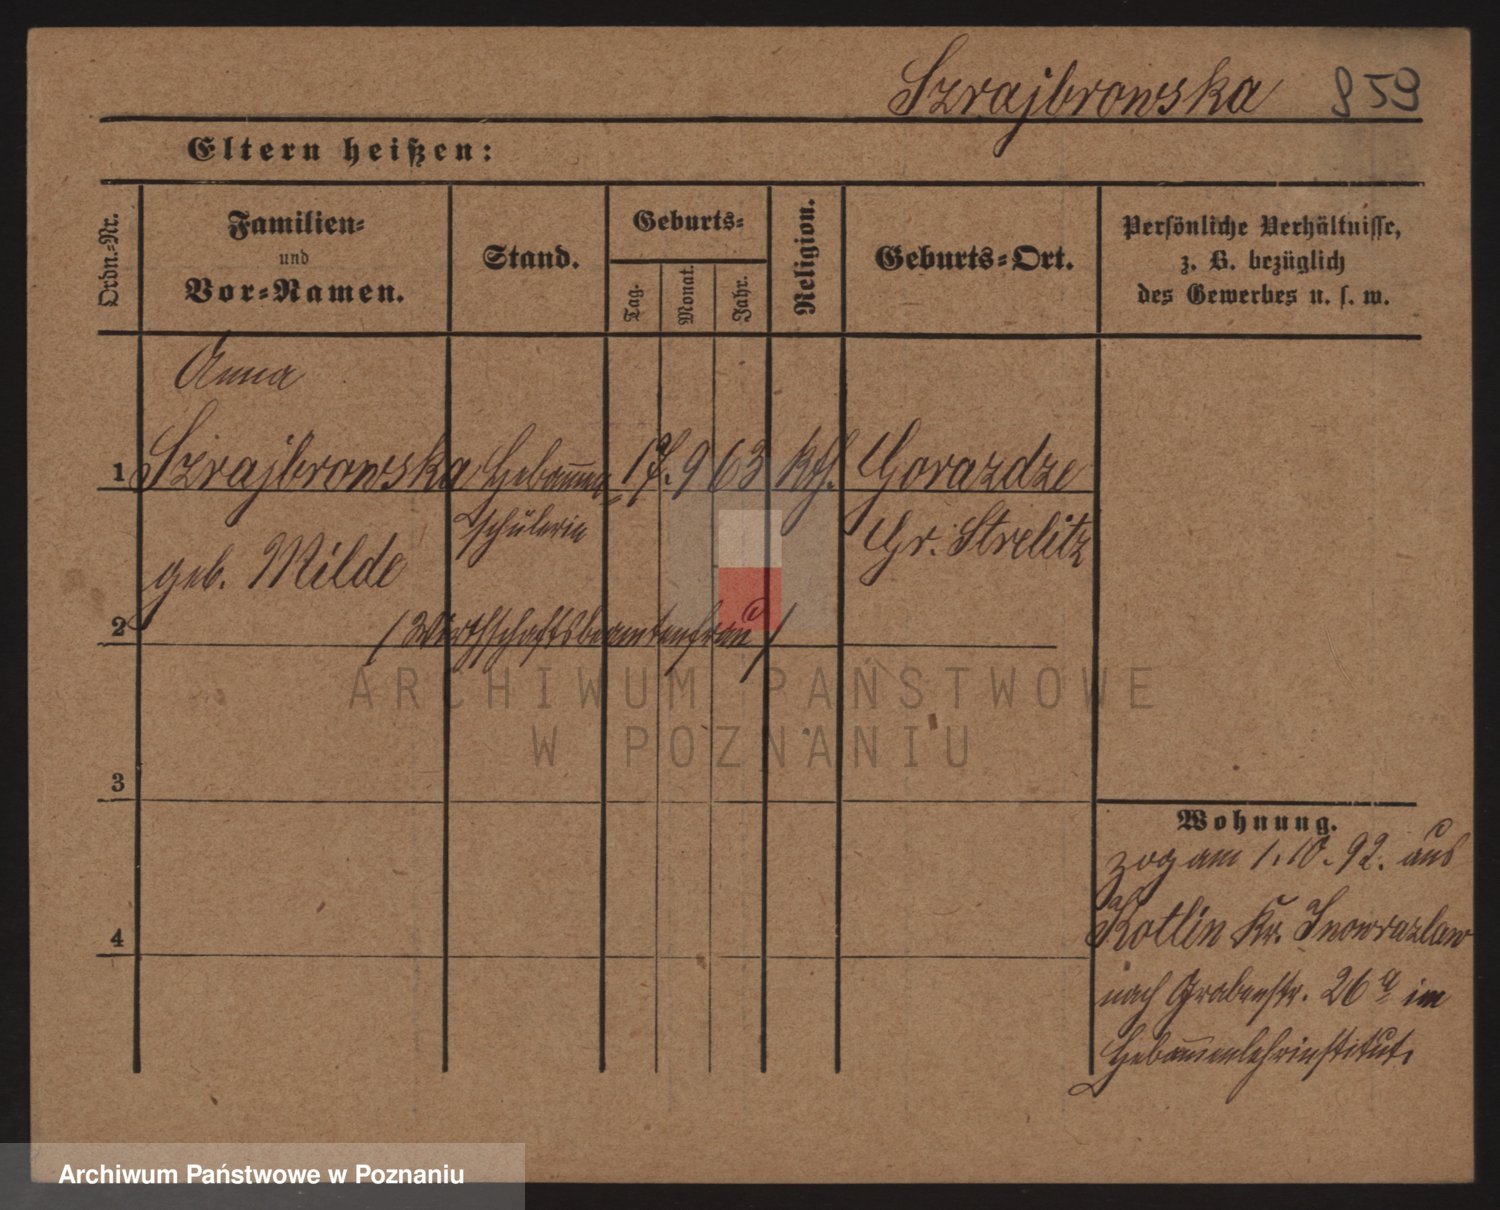 Szrajbrowska 959
Eltern heißen:
Ordn.-Nr.
Familien-
und
Vor-Namen.
Stand.
Geburts-
Tag.
Monat.
Jahr.
Religion.
Geburts-Ort.
Persönliche Verhältnisse,
z. B. bezüglich
des Gewerbes u. s. w.
Anna
1 Szrajbrowska Hebam̅en- 17. 9 63 kth. Gorazdze
schülerin Gr. Strelitz
geb. Milde
2 (Wirthschaftsbeamtenfrau)
ARCHIWUM PAŃSTWOWE
W POZNANIU
3
Wohnung.
zog am 1.10.92. aus
4 Kotlin Kr. Inowrazlaw
nach Grabenstr. 26 a im
Hebam̅enlehrinstitut.
Archiwum Państwowe w Poznaniu